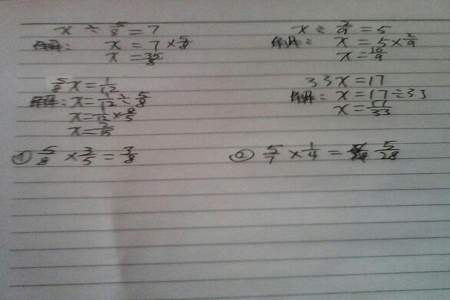 x ÷ 5/8 = 7
解: x = 7 × 5/8
x = 35/8
x ÷ 2/9 = 5
解: x = 5 × 2/9
x = 10/9
5/8 x = 1/12
解: x = 1/12 ÷ 5/8
x = 1/12 × 8/5
x = 2/15
33x = 17
解: x = 17 ÷ 33
x = 17/33
① 5/8 × 3/5 = 3/8
② 5/7 × 1/4 = 5/28